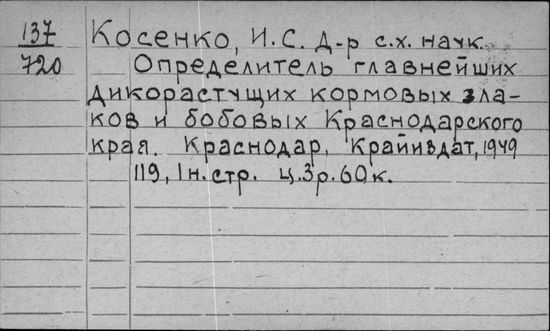 137
720
Косенко, И.С. Д-р с.х. наук.
Определитель главнейших
дикорастущих кормовых зла-
ков и бобовых Краснодарского
края. Краснодар, Крайиздат, 1949
119, 1 н. стр. ц. 3 р. 60 к.